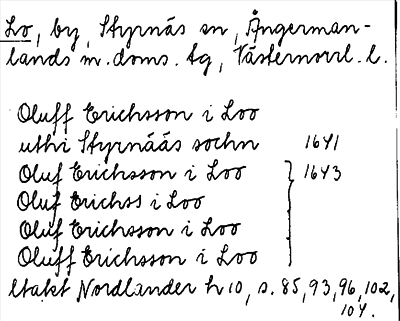 Lo, by, Styrnäs sn, Ångerman-
lands m. doms. tg, Västernorrl. l.
Oluff Erichsson i Loo
uthi Styrnääs sochn 1641
Oluf Erichsson i Loo 1643
Oluf Erichss i Loo
Oluf Ericsson i Loo
Oluff Erichsson i Loo
ltakt Nordlander h 10, s. 85, 93, 96, 102,
104.